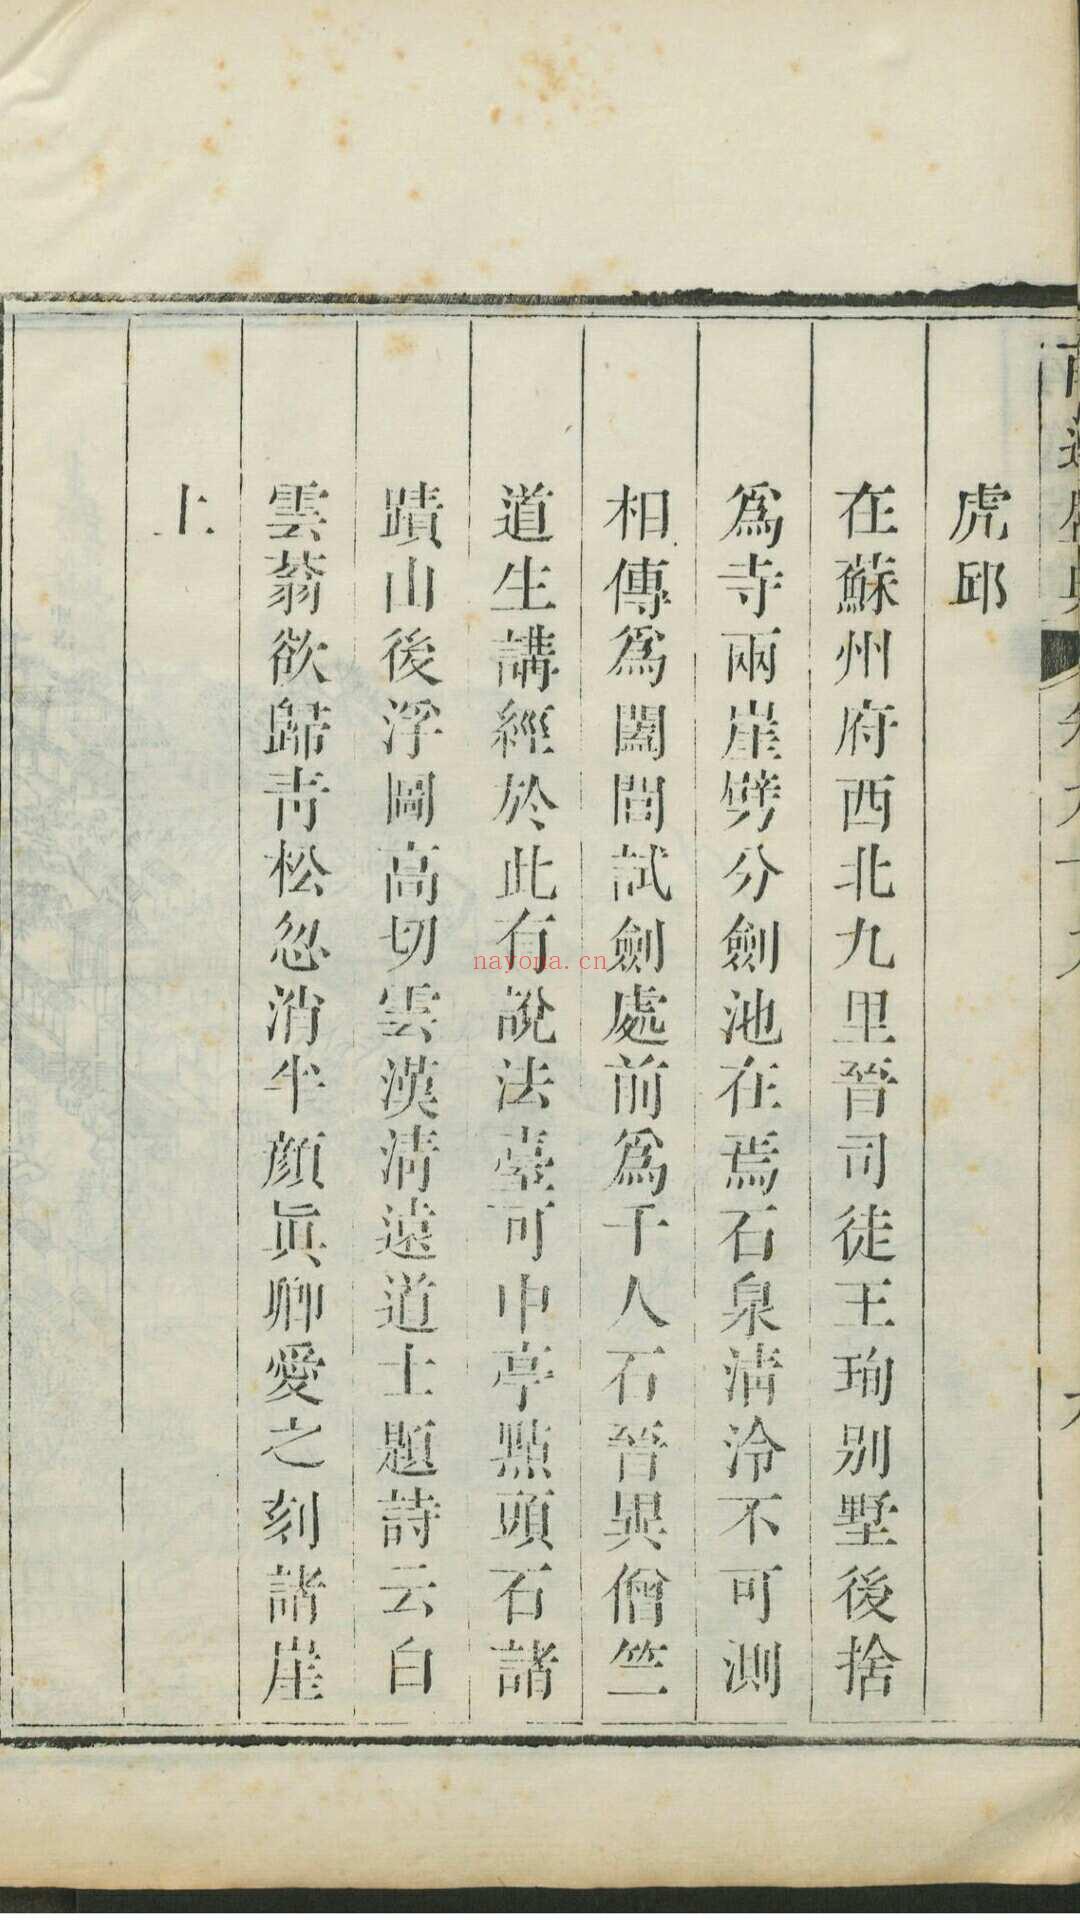 虎邱
在蘇州府西北九里晉司徒王珣別墅後捨
爲寺兩崖劈分劍池在焉石泉淸泠不可測
相傳爲闔閭試劍處前爲千人石晉異僧竺
道生講經於此有說法臺可中亭點頭石諸
蹟山後浮圖高切雲漢淸遠道士題詩云白
雲蓊欲歸靑松忽消半顔眞卿愛之刻諸崖
上
nayona.cn